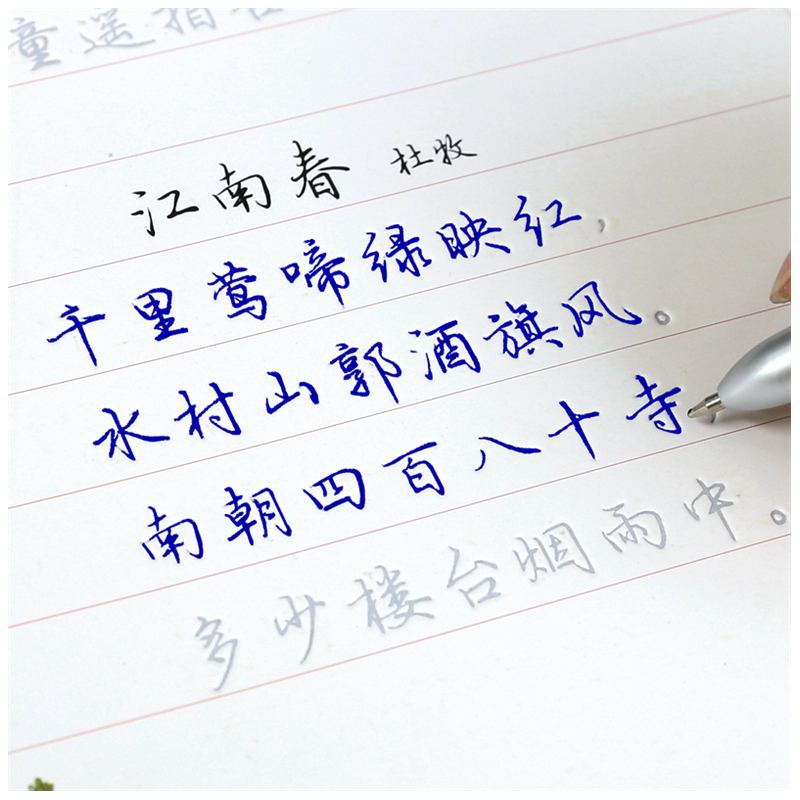 童遥指
江南春 杜牧
千里莺啼绿映红，
水村山郭酒旗风。
南朝四百八十寺
多少楼台烟雨中。